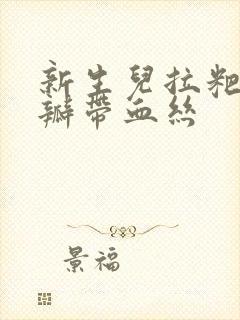 新生兒拉粑
瓣帶血絲
景福